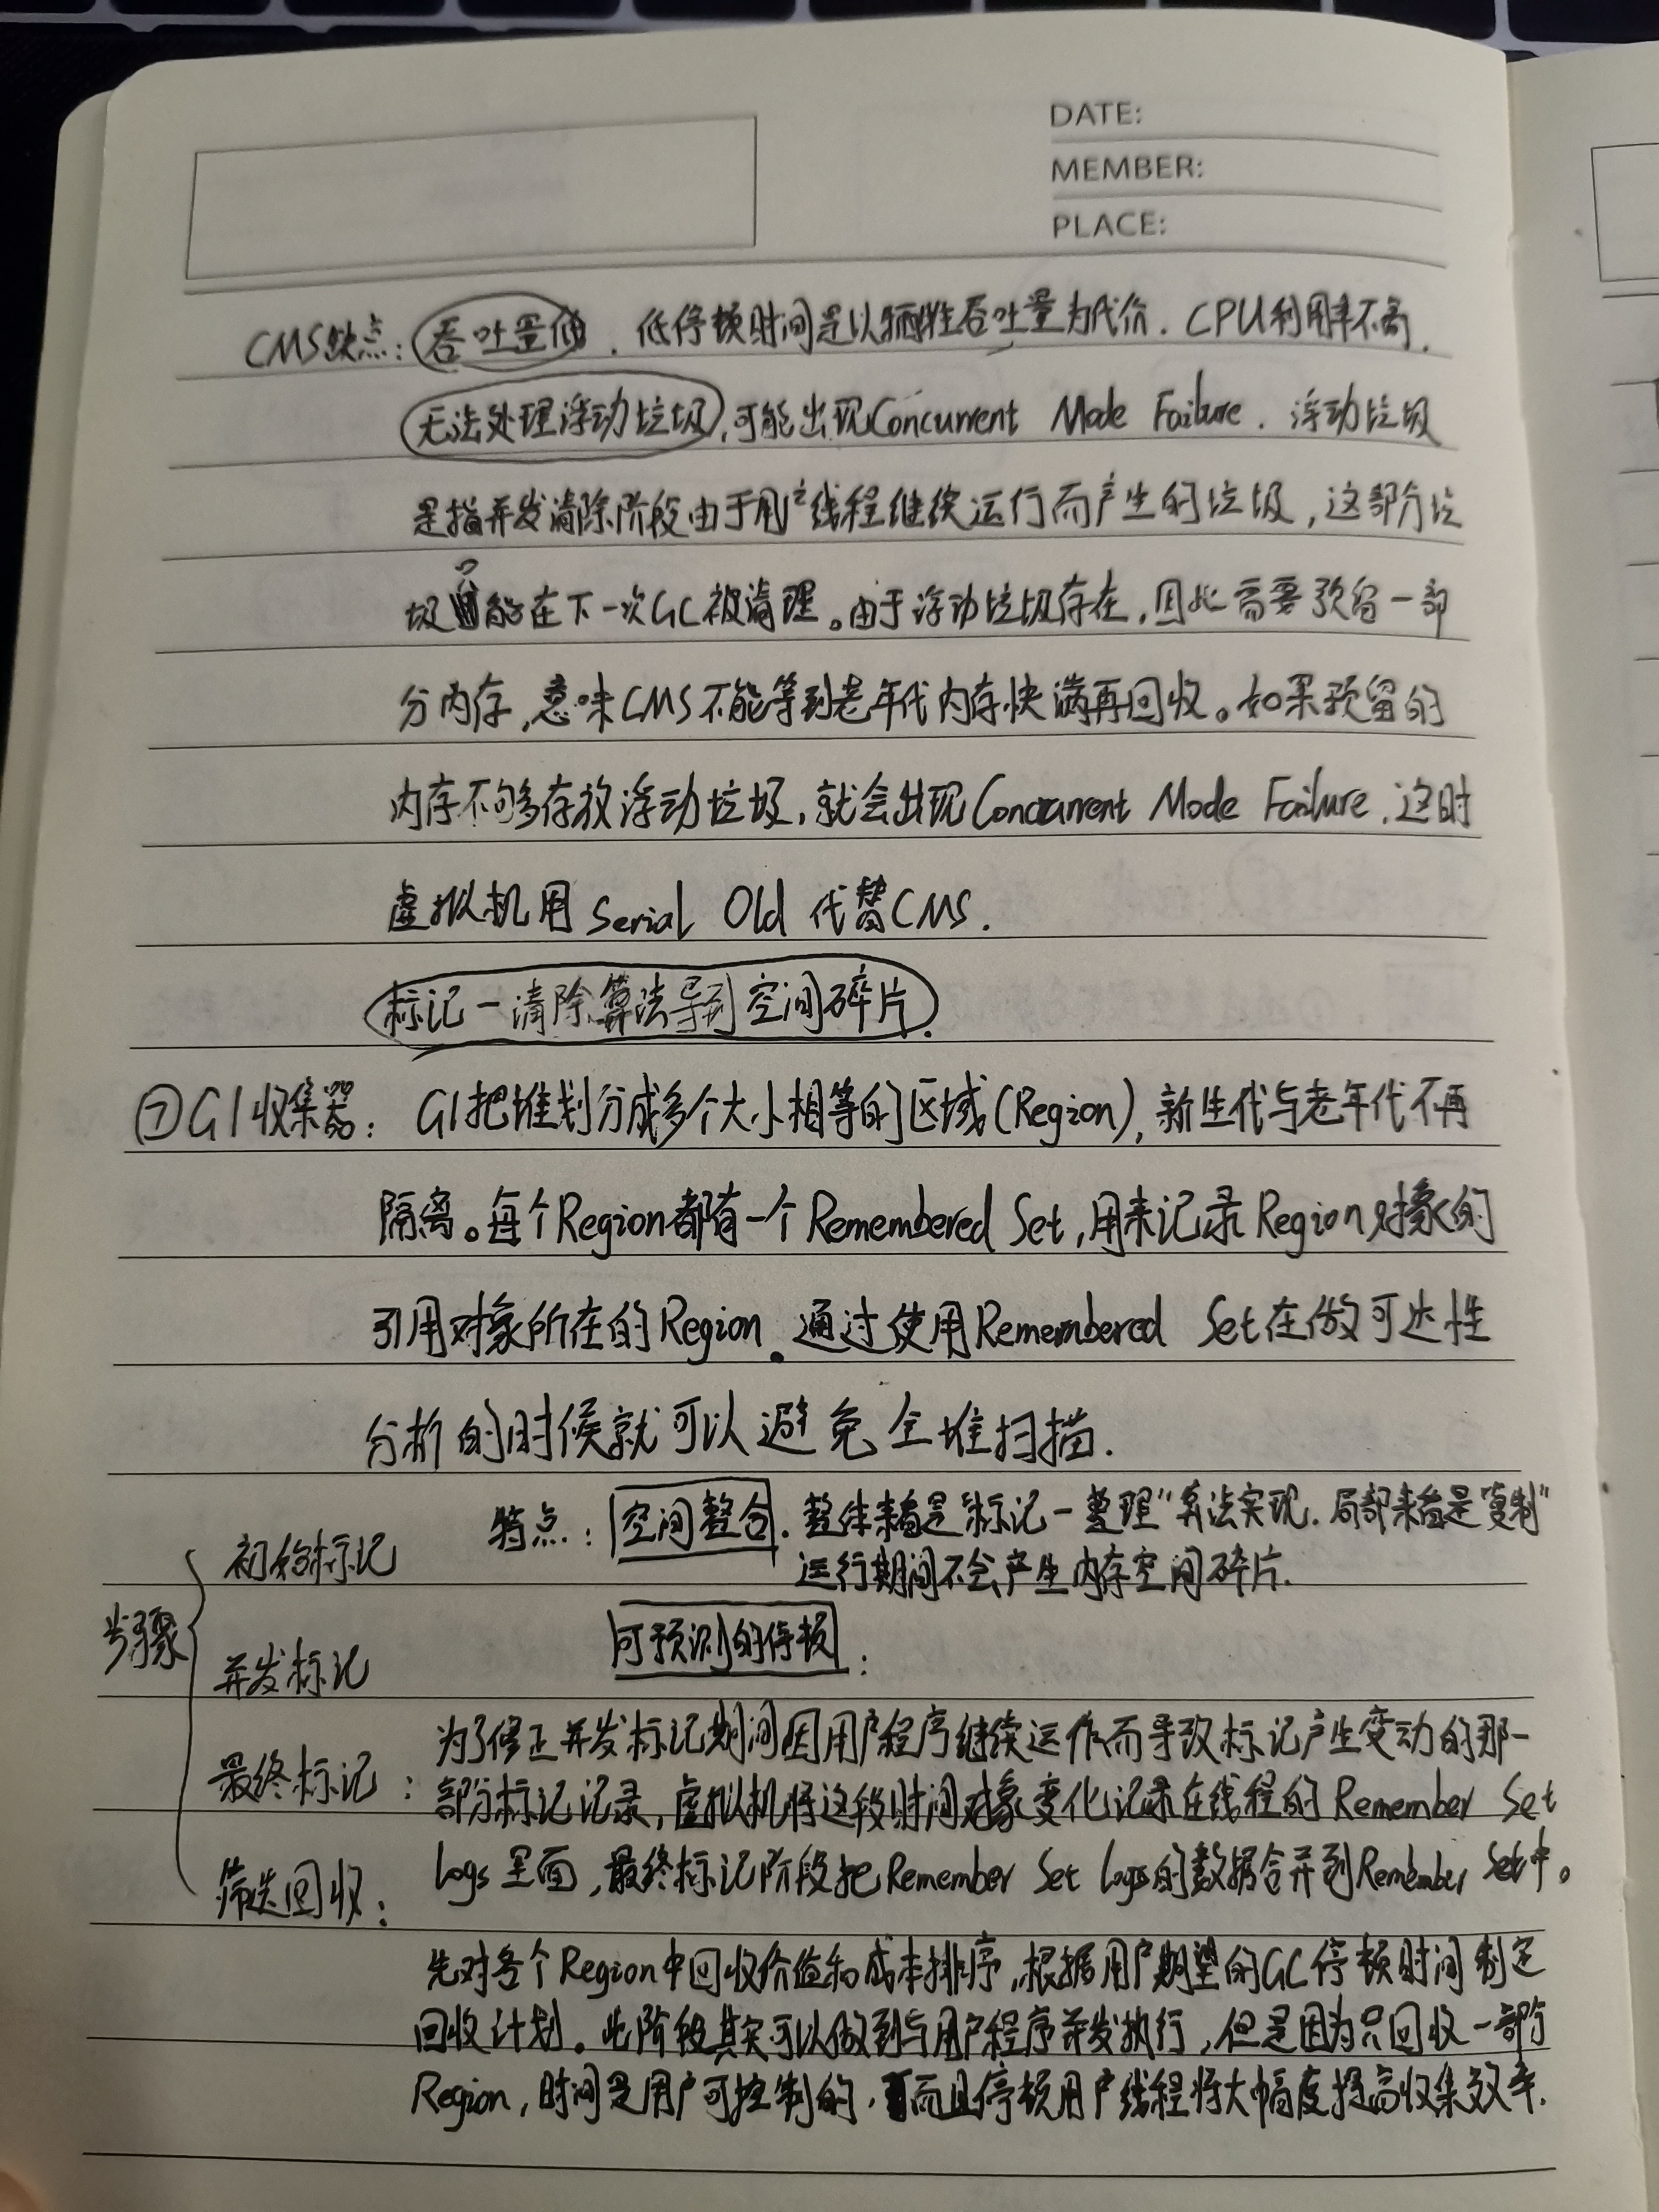 DATE:
MEMBER:
PLACE:
CMS缺点：吞吐量低．低停顿时间是以牺牲吞吐量为代价．CPU利用率不高．
无法处理浮动垃圾，可能出现Concurrent Mode Failure．浮动垃圾
是指并发清除阶段由于用户线程继续运行而产生的垃圾，这部分垃
圾只能在下一次GC被清理。由于浮动垃圾存在，因此需要预留一部
分内存，意味CMS不能等到老年代内存快满再回收。如果预留的
内存不够存放浮动垃圾，就会出现Concurrent Mode Failure．这时
虚拟机用 Serial Old 代替CMS．
标记－清除算法导致空间碎片．
⑦G1收集器： G1把堆划分成多个大小相等的区域(Region)，新生代与老年代不再
隔离。每个Region都有一个Remembered Set，用来记录Region对象的
引用对象所在的Region。通过使用Remembered Set在做可达性
分析的时候就可以避免全堆扫描．
特点：空间整合．整体来看是“标记－整理”算法实现．局部来看是“复制”
运行期间不会产生内存空间碎片．
可预测的停顿：
步骤
初始标记
并发标记
最终标记：为了修正并发标记期间因用户程序继续运作而导致标记产生变动的那一
部分标记记录，虚拟机将这段时间对象变化记录在线程的 Remember Set
Logs里面，最终标记阶段把Remember Set Logs的数据合并到Remember Set中。
筛选回收：
先对各个Region中回收价值和成本排序，根据用户期望的GC停顿时间制定
回收计划。此阶段其实可以做到与用户程序并发执行，但是因为只回收一部分
Region，时间是用户可控制的，而且停顿用户线程将大幅度提高收集效率．